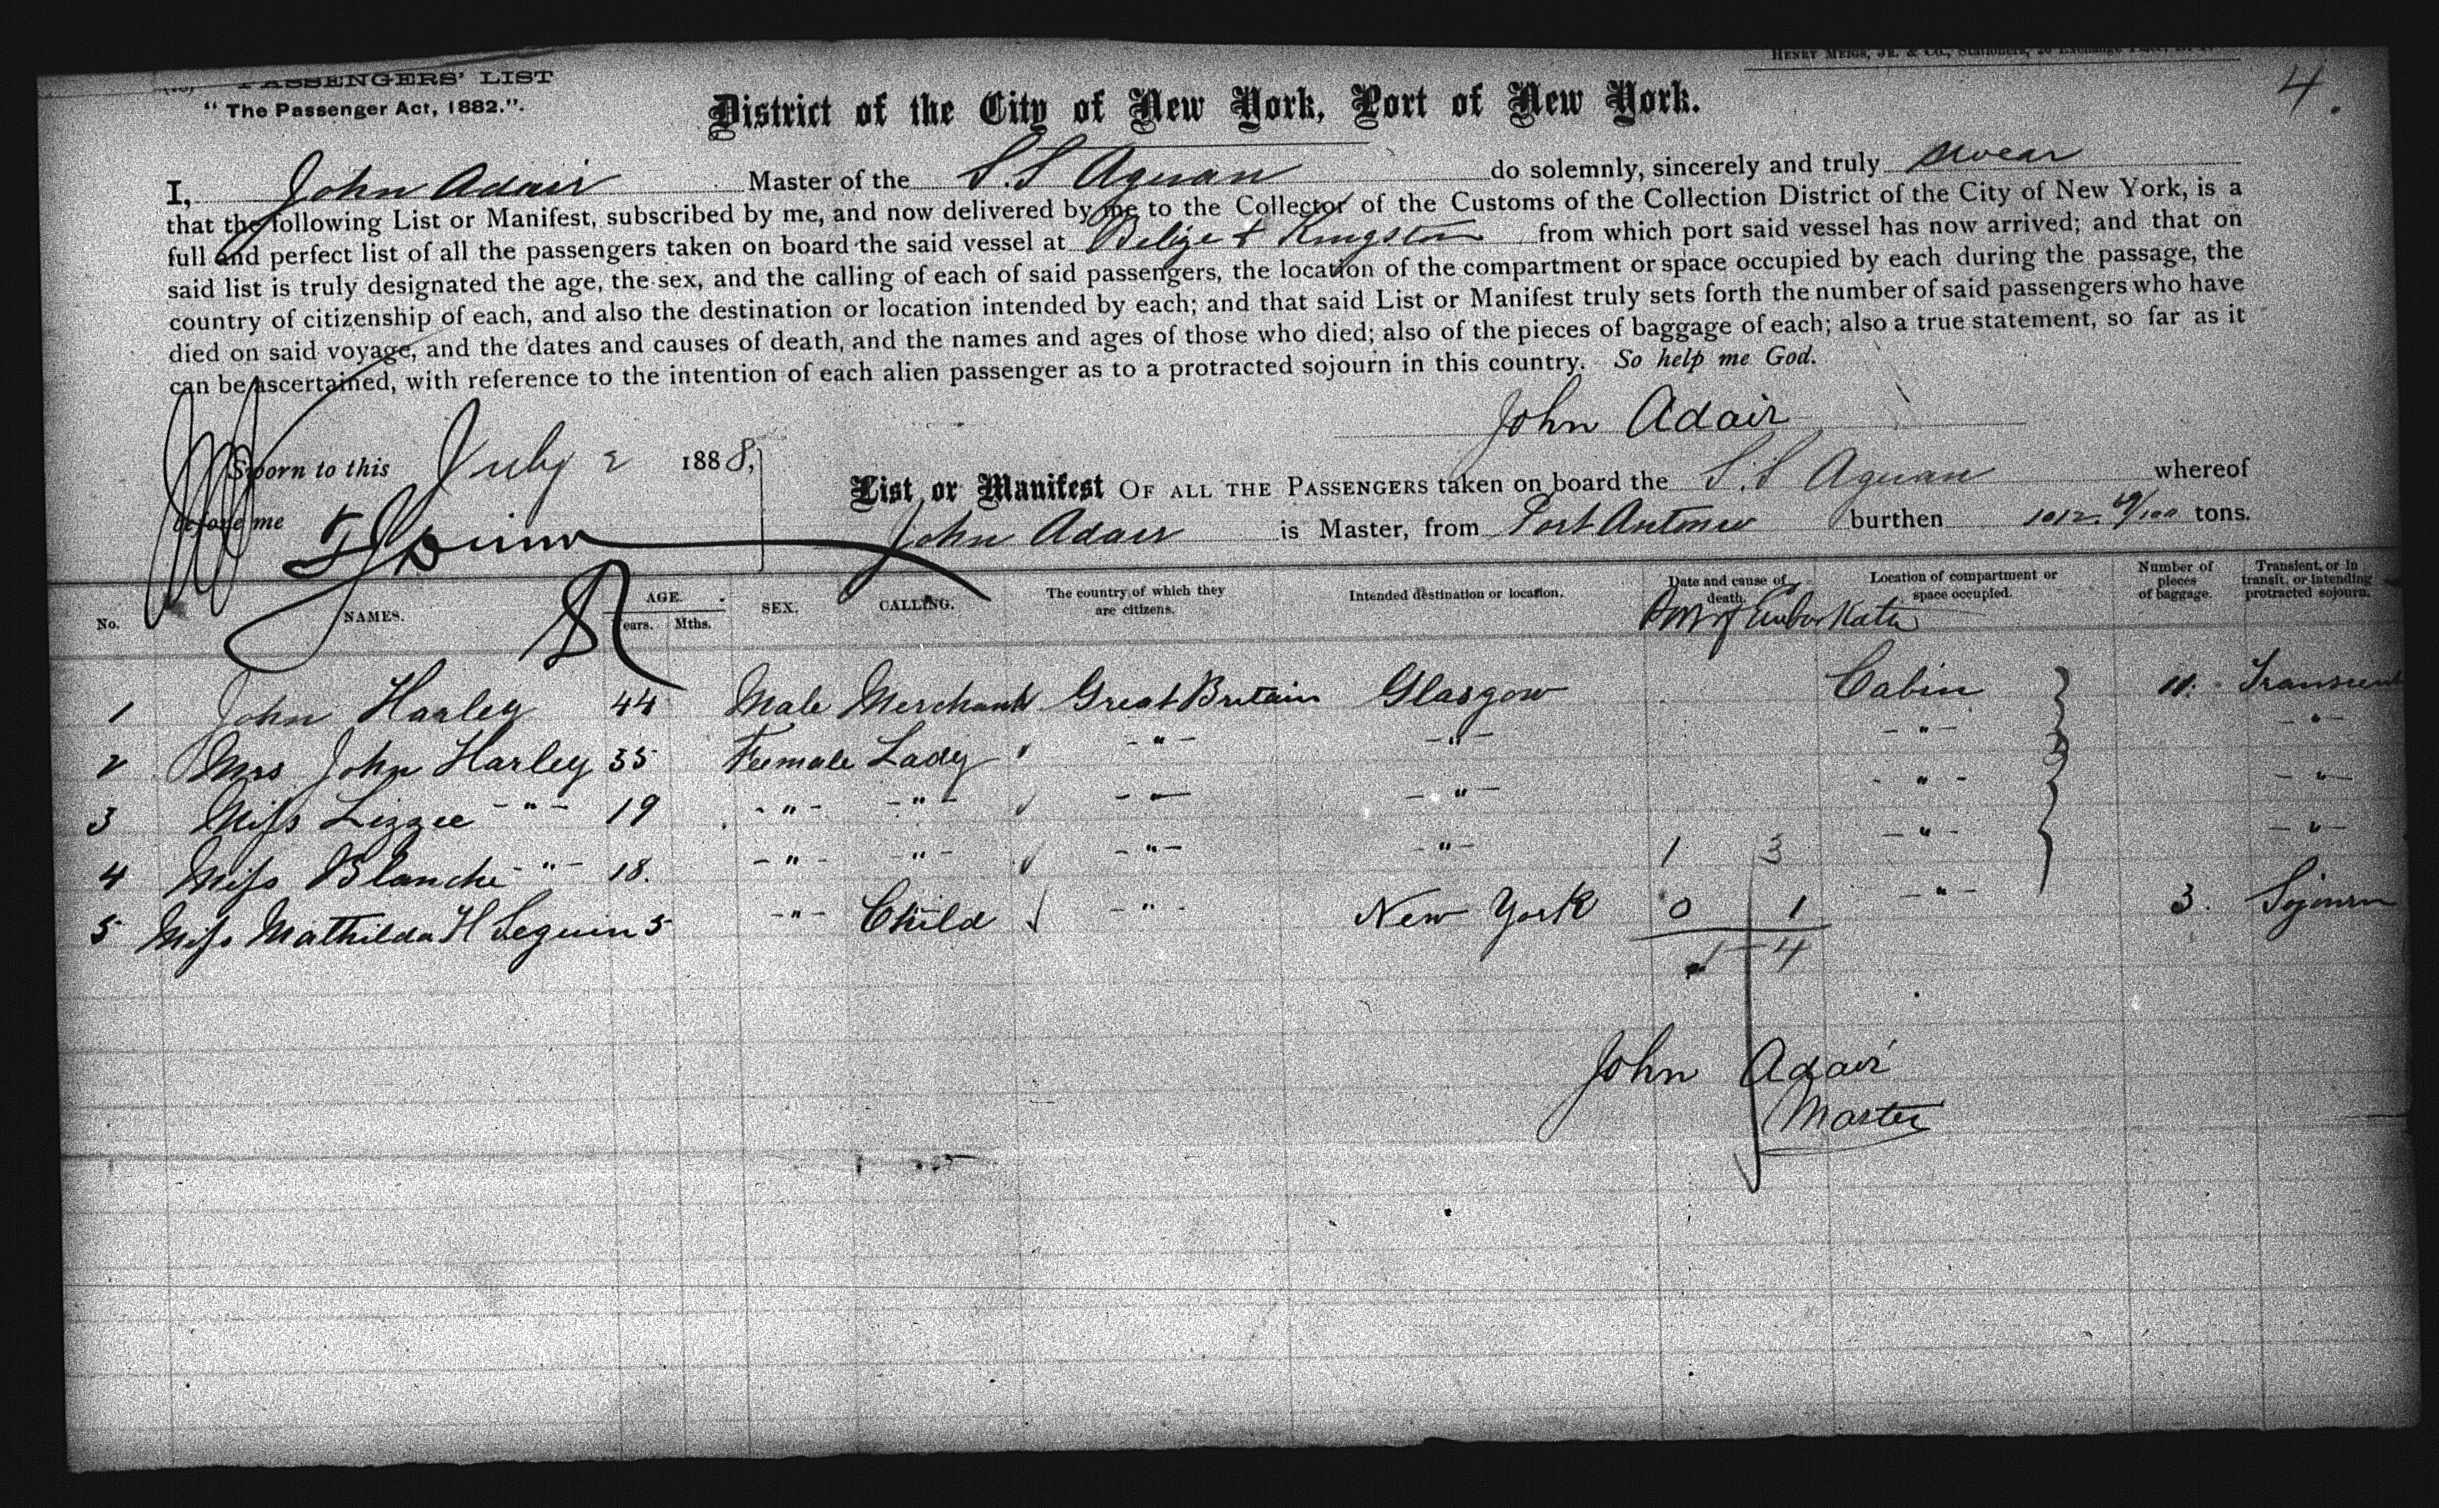 PASSENGERS' LIST
HENRY MEIGS, JR. & CO., Stationers,
4.
"The Passenger Act, 1882."
District of the City of New York, Port of New York.
I, John Adair Master of the S.S Aguan do solemnly, sincerely and truly swear
that the following List or Manifest, subscribed by me, and now delivered by me to the Collector of the Customs of the Collection District of the City of New York, is a
full and perfect list of all the passengers taken on board the said vessel at Belize & Kingston from which port said vessel has now arrived; and that on
said list is truly designated the age, the sex, and the calling of each of said passengers, the location of the compartment or space occupied by each during the passage, the
country of citizenship of each, and also the destination or location intended by each; and that said List or Manifest truly sets forth the number of said passengers who have
died on said voyage, and the dates and causes of death, and the names and ages of those who died; also of the pieces of baggage of each; also a true statement, so far as it
can be ascertained, with reference to the intention of each alien passenger as to a protracted sojourn in this country. So help me God.
John Adair
Sworn to this July 2 1888,
before me
List or Manifest OF ALL THE PASSENGERS taken on board the S.S Aguan whereof
John Adair is Master, from Port Antonio burthen 1012 /100 tons.
No. NAMES. AGE. Years. Mths. SEX. CALLING. The country of which they are citizens. Intended destination or location. Date and cause of death. Location of compartment or space occupied. Number of pieces of baggage. Transient, or in transit, or intending protracted sojourn.
1 John Harley 44 Male Merchant Great Britain Glasgow Cabin 11. Transient
2 Mrs John Harley 35 Female Lady " - " - - " - - " - - " -
3 Miss Lizzee - " - 19 - " - - " - - " - - " - - " - - " -
4 Miss Blanche - " - 18. - " - - " - - " - - " - 1 3 - " - - " -
5 Miss Mathilda H Seguin 5 - " - Child - " - New York 0 1 - " - 3. Sojourn
1 4
John Adair
Master